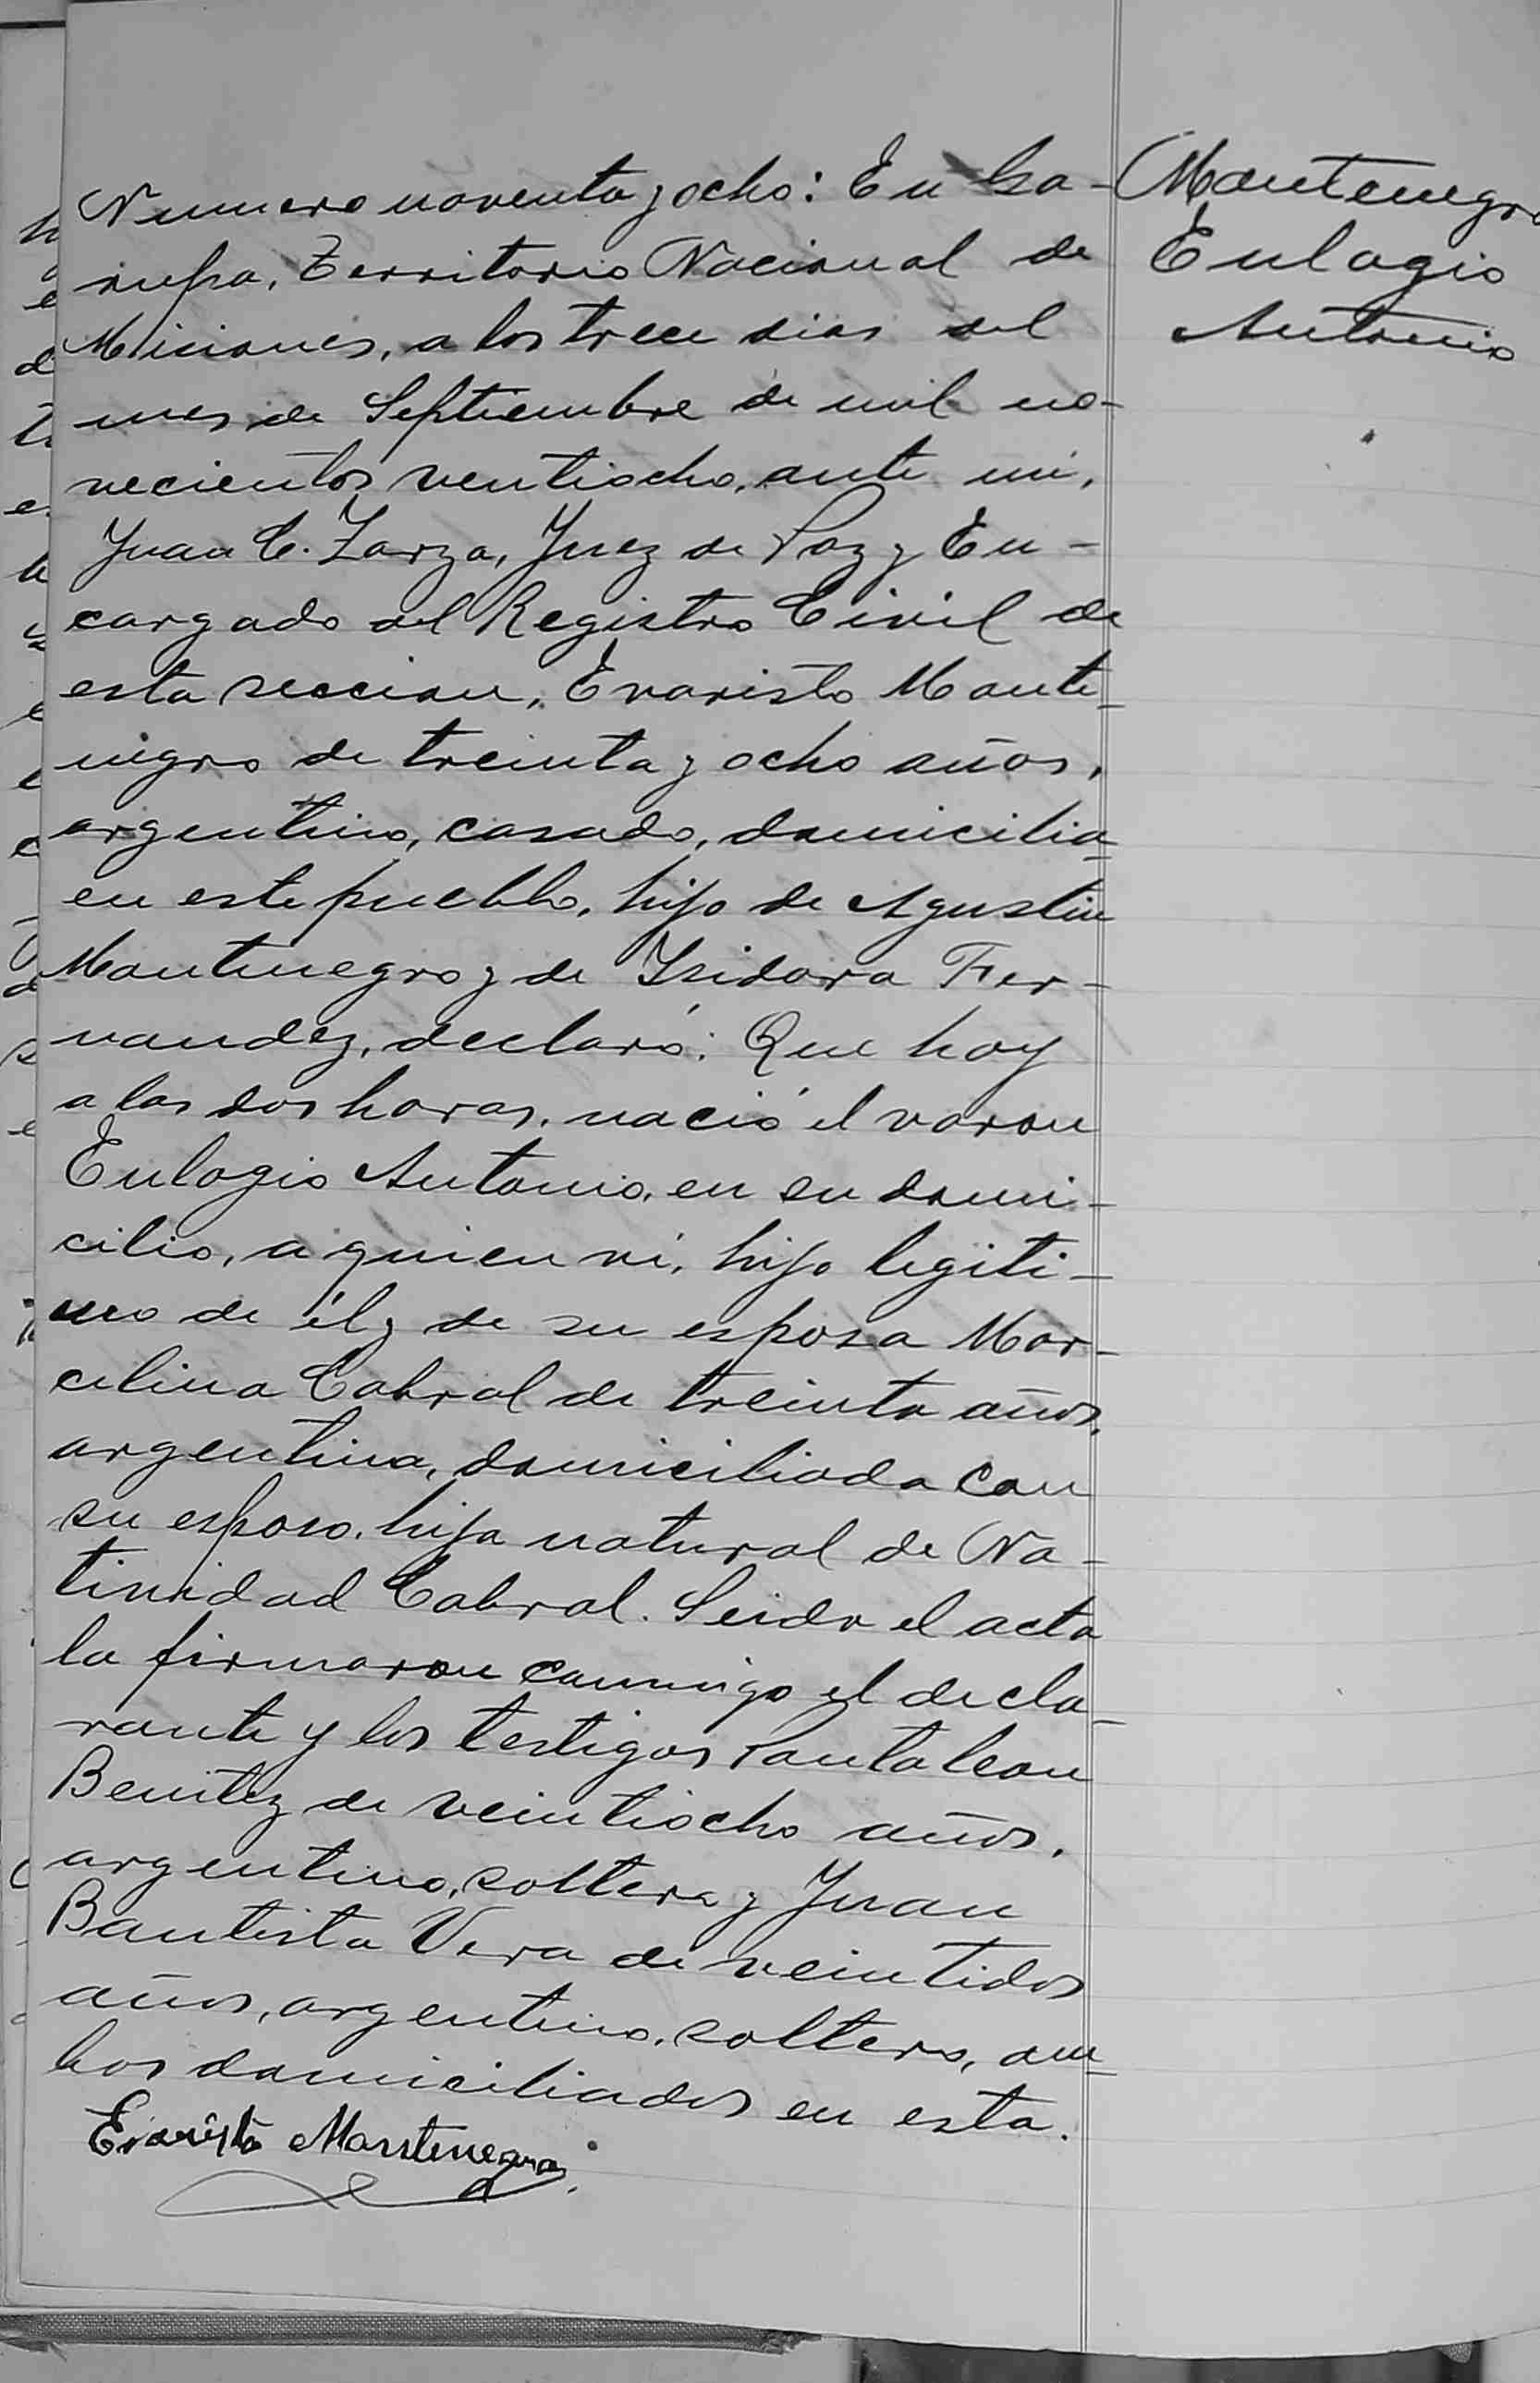 Numero noventa y ocho: En Ga-
rupa, Territorio Nacional de
Misiones, a los trece dias del
mes de Septiembre de mil no-
vecientos ventiocho, ante mi,
Juan C. Zarza, Juez de Paz y En-
cargado del Registro Civil de
esta seccion, Evaristo Monte-
negro de treinta y ocho años,
argentino, casado, domicilia-
en este pueblo, hijo de Agustin
Montenegro y de Ysidora Fer-
nandez, declaró: Que hoy
a las dos horas, nació el varon
Eulogio Antonio, en su domi-
cilio, a quien vi, hijo legiti-
mo de él y de su esposa Mar-
celina Cabral de treinta años,
argentina, domiciliada con
su esposo, hija natural de Na-
tividad Cabral. Leida el acta
la firmaron conmigo el decla-
rante y los testigos Pantaleon
Benitez de veintiocho años,
argentino, soltero y Juan
Bautista Vera de veintidos
años, argentino, soltero, am-
bos domiciliados en esta.
Evaristo Montenegro
Montenegro
Eulogio
Antonio